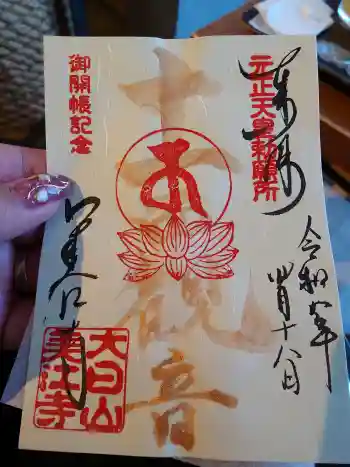 元正天皇勅願所
奉拝
令和年
四月十八日
十一面観音
御開帳記念
美江寺
大日山
美江寺